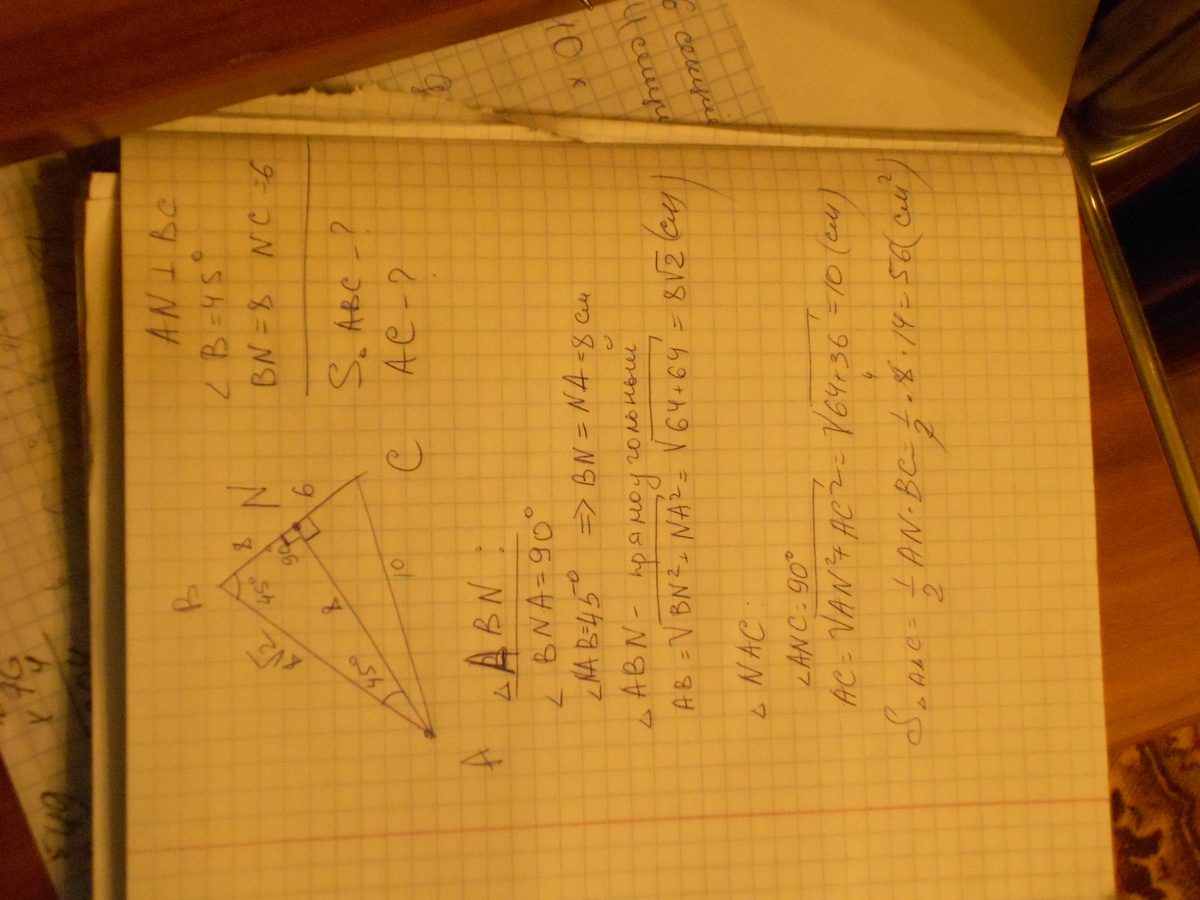 AN ⊥ BC
∠B = 45°
BN = 8 NC = 6
S△ ABC - ?
AC - ?
B
8
N
6
C
A
45°
90°
√2
8
45°
10
△ ABN:
∠ BNA = 90°
∠NAB = 45° => BN = NA = 8 см
△ ABN - прямоугольный
AB = √BN² + NA² = √64+64 = 8√2 (см)
△ NAC:
∠ANC = 90°
AC = √AN² + AC² = √64+36 = 10 (см)
S△ABC = 1/2 AN · BC = 1/2 · 8 · 14 = 56 (см²)
4
× 10